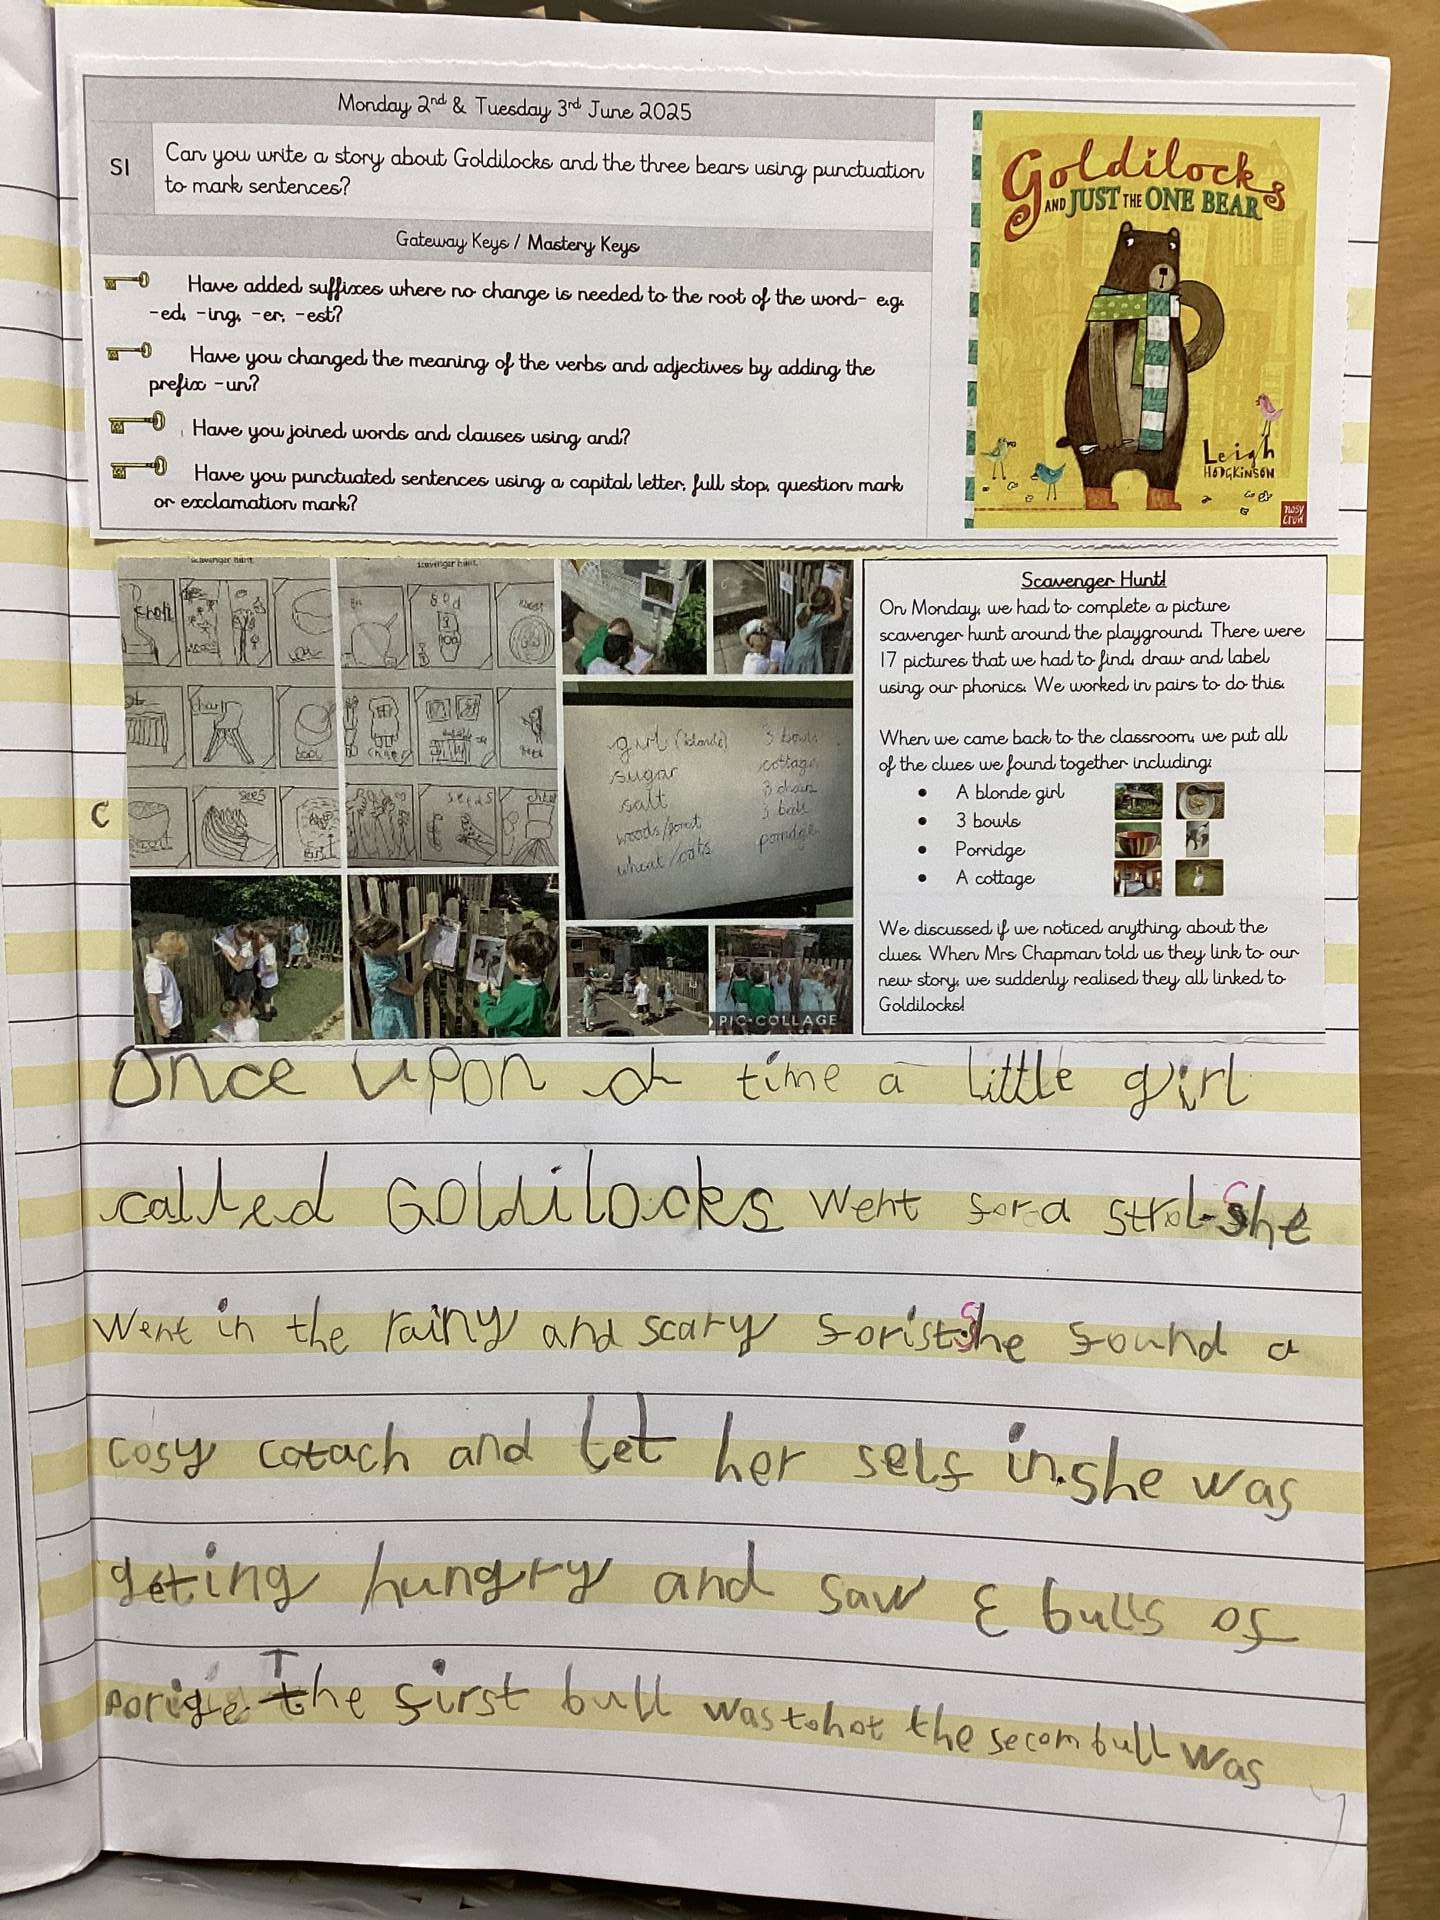 Monday 2nd & Tuesday 3rd June 2025
SI
Can you write a story about Goldilocks and the three bears using punctuation
to mark sentences?
Gateway Keys / Mastery Keys
Have added suffixes where no change is needed to the root of the word- e.g.
-ed, -ing, -er, -est?
Have you changed the meaning of the verbs and adjectives by adding the
prefix -un?
Have you joined words and clauses using and?
Have you punctuated sentences using a capital letter, full stop, question mark
or exclamation mark?
Goldilocks
AND JUST THE ONE BEAR
Leigh
HODGKINSON
nosy
crow
scavenger hunt
scavenger hunt
chair
sees
seeds
girl (blonde)
sugar
salt
woods/forest
wheat/oats
3 bowls
cottage
3 chairs
3 beds
porridge
PIC•COLLAGE
C
Scavenger Hunt!
On Monday, we had to complete a picture
scavenger hunt around the playground. There were
17 pictures that we had to find, draw and label
using our phonics. We worked in pairs to do this.
When we came back to the classroom, we put all
of the clues we found together including:
• A blonde girl
• 3 bowls
• Porridge
• A cottage
We discussed if we noticed anything about the
clues. When Mrs Chapman told us they link to our
new story, we suddenly realised they all linked to
Goldilocks!
Once upon a time a little girl
called Goldilocks went for a strol. She
went in the rainy and scary forist. She found a
cosy cotach and let her self in. she was
geting hungry and saw 3 bulls of
porige The first bull was to hot the secom bull was